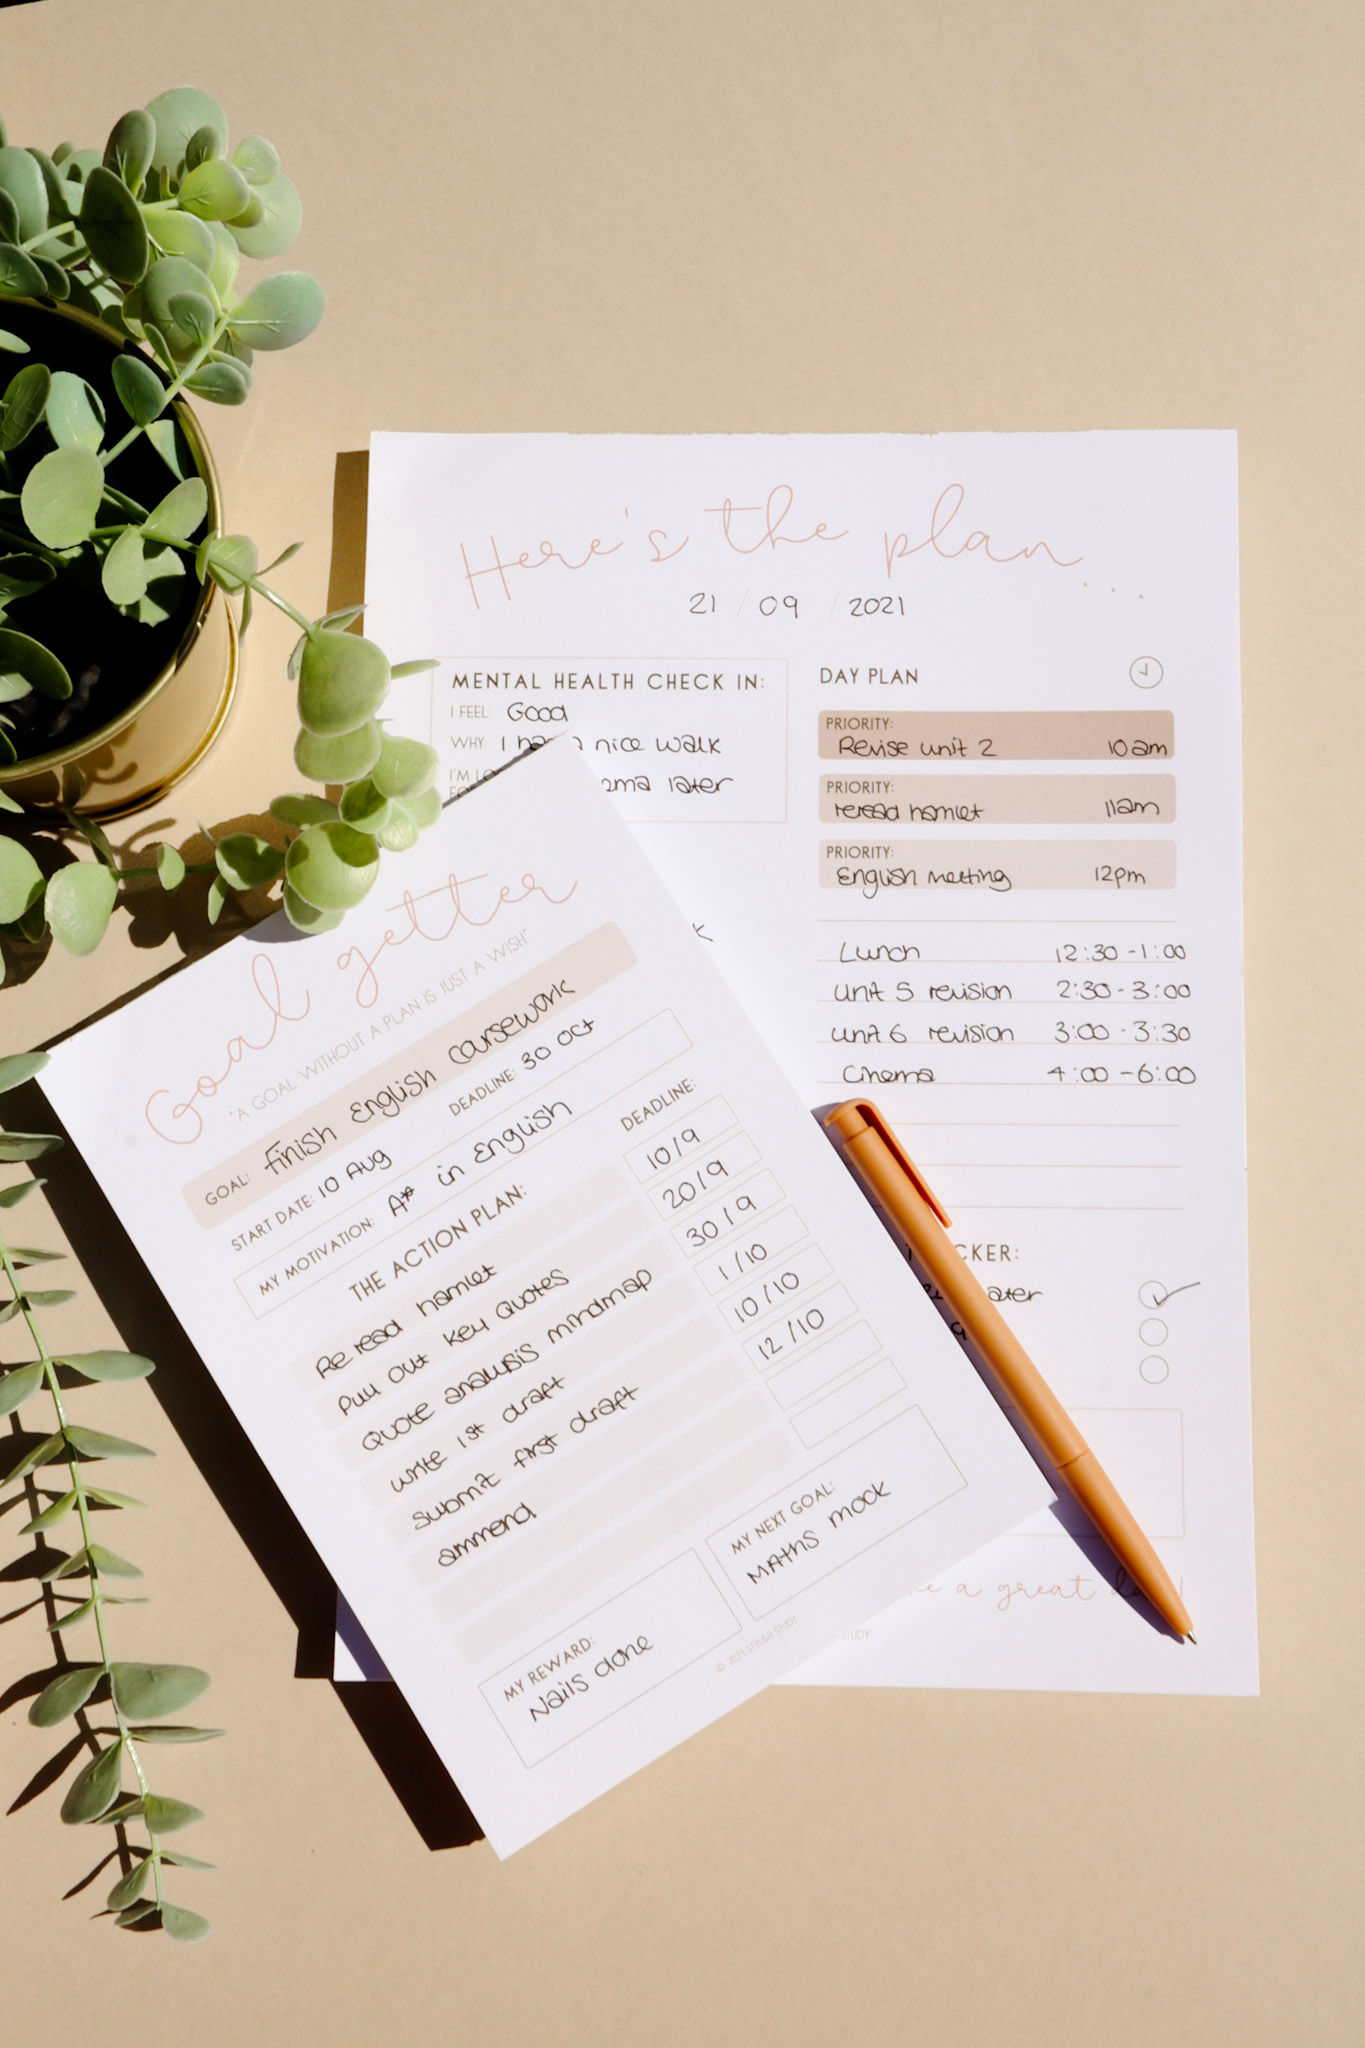 Here's the plan...
21 / 09 / 2021
MENTAL HEALTH CHECK IN:
I FEEL: Good
WHY: I had a nice walk
I'M LO
later
DAY PLAN
PRIORITY:
Revise unit 2 10am
PRIORITY:
reread hamlet 11am
PRIORITY:
English meeting 12pm
Lunch 12:30 - 1:00
unit 5 revision 2:30 - 3:00
unit 6 revision 3:00 - 3:30
Cinema 4:00 - 6:00
CKER:
ater
a great
STUDY
Goal getter
"A GOAL WITHOUT A PLAN IS JUST A WISH"
GOAL: finish English coursework
START DATE: 10 Aug DEADLINE: 30 Oct
MY MOTIVATION: A* in English
THE ACTION PLAN: DEADLINE:
Re read hamlet 10/9
Pull out key Quotes 20/9
Quote analysis mindmap 30/9
write 1st draft 1/10
submit first draft 10/10
ammend 12/10
MY REWARD:
Nails done
MY NEXT GOAL:
MATHS mock
© 2021 STYLISH STUDY